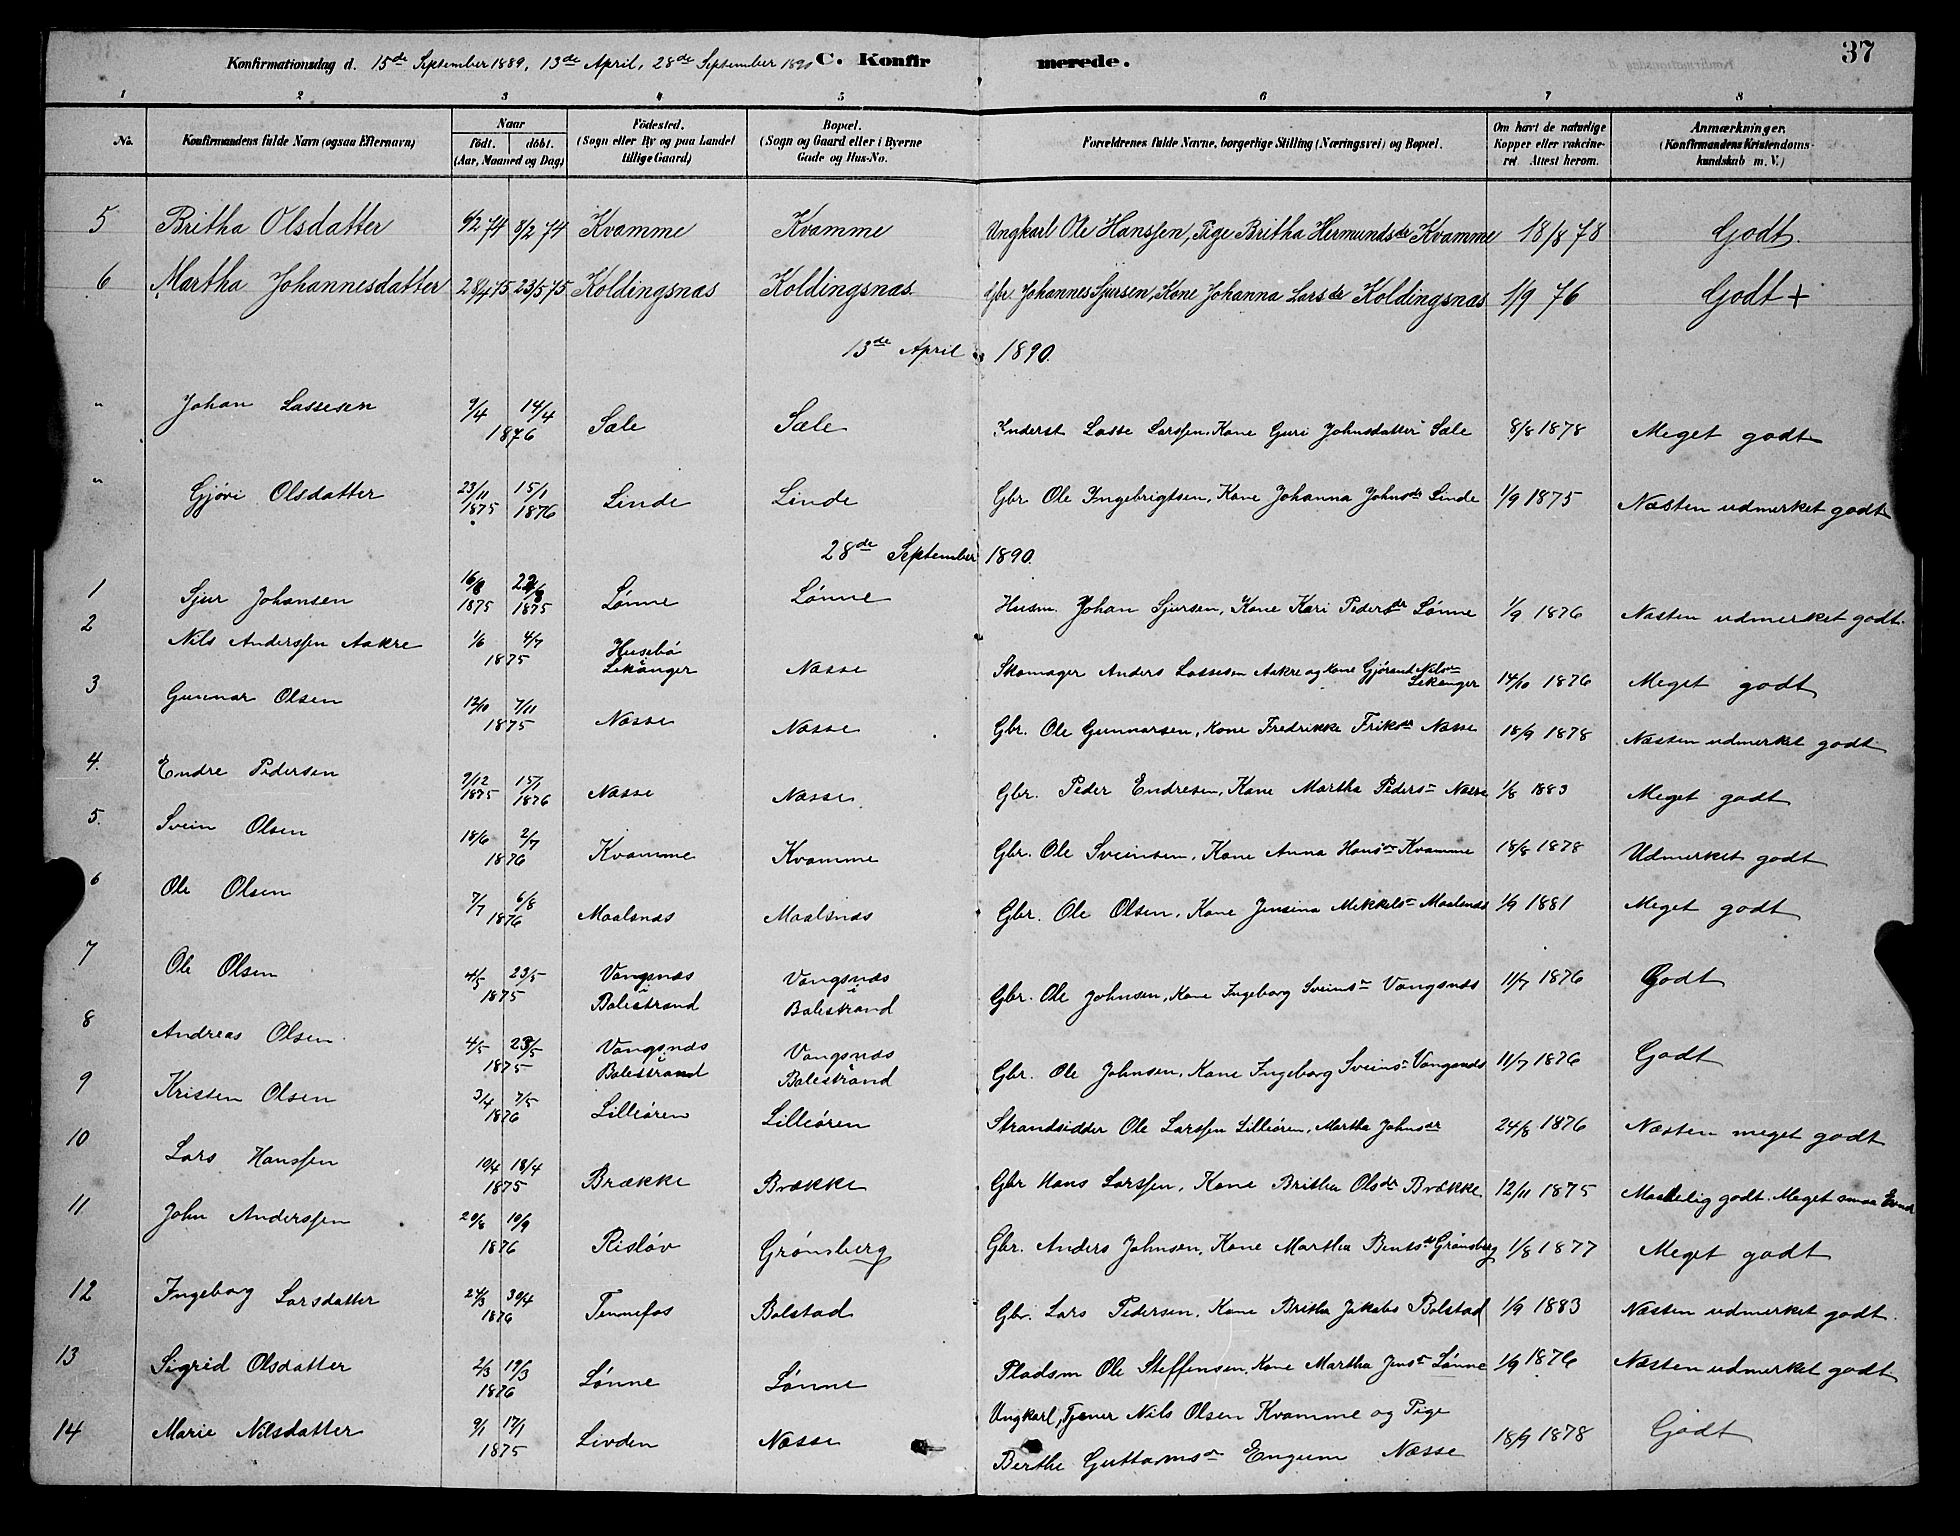 Konfirmationsdag d. 15de September 1889, 13de April, 28de September 1890 C. Konfirmerede. 37
1 2 3 4 5 6 7 8
No. Konfirmandens fulde Navn (ogsaa Efternavn) Naar født. døbt. (Aar, Maaned og Dag) Fødested. (Sogn eller By og paa Landet tillige Gaard) Bopæl. (Sogn og Gaard eller i Byerne Gade og Hus-No. Forældrenes fulde Navne, borgerlige Stilling (Næringsvei) og Bopæl. Om havt de naturlige Kopper eller vakcineret. Attest herom. Anmærkninger. (Konfirmandens Kristendomskundskab m. V.)
5 Britha Olsdatter 6/2 74 8/2 74 Kvamme Kvamme Ungkarl Ole Hanssen, Pige Britha Hermundsdr Kvamme 18/8 78 Godt.
6 Martha Johannesdatter 28/4 75 23/5 75 Koldingsnæs Koldingsnæs. Gbr. Johannes Sjursen, Kone Johanna Larsdr Koldingsnæs 1/9 76 Godt +
13de April 1890.
" Johan Lassesen 9/4 14/4 1876 Sæle Sæle Inderst Lasse Larssen, Kone Guri Johnsdatter Sæle 8/8 1878 Meget godt
" Gjøri Olsdatter 23/11 1875 15/1 1876 Linde Linde Gbr Ole Ingebrigtsen, Kone Johanna Johnsdr Linde 1/9 1875 Næsten udmerket godt
28de September 1890.
1 Sjur Johansen 16/8 1875 22/8 1875 Lønne Lønne Husm. Johan Sjursen, Kone Kari Pedersdr Lønne 1/9 1876 Næsten udmerket godt.
2 Nils Anderssen Aakre 1/6 4/7 1875 Husebø Lekanger Næsse Skomager Anders Lassesen Aakre og Kone Gjørand Nilsdr Lekanger 14/10 1876 Meget godt
3 Gunnar Olsen 12/10 7/11 1875 Næsse Næsse Gbr. Ole Gunnarsen, Kone Fredrikke Friksdr Næsse 18/9 1878 Næsten udmerket godt
4. Endre Pedersen 9/12 1875 15/1 1876 Næsse Næsse. Gbr. Peder Endresen, Kone Martha Peders- Næsse 1/8 1883 Meget godt
5. Svein Olsen 18/6 2/7 1876 Kvamme Kvamme Gbr. Ole Sveinsen, Kone Anna Hansdr Kvamme 18/8 1878 Udmerket godt
6 Ole Olsen 7/7 6/8 1876 Maalsnæs Maalsnæs Gbr. Ole Olsen, Kone Jensina Mikkels- Maalsnæs 1/9 1881 Meget godt
7 Ole Olsen 4/5 23/5 1875 Vangsnæs Balestrand Vangsnæs Balestrand Gbr. Ole Johnsen, Kone Ingeborg Sveins- Vangsnæs 11/7 1876 Godt
8 Andreas Olsen. 4/5 23/5 1875 Vangsnæs Balestrand Vangsnæs Balestrand Gbr. Ole Johnsen, Kone Ingeborg Sveins- Vangsnæs 11/7 1876 Godt
9 Kristen Olsen 3/4 7/5 1876 Lilleøren Lilleøren Strandsidder Ole Larssen Lilleøren, Martha Johnsdr 24/8 1876 Næsten meget godt
10 Lars Hanssen 10/4 18/4 1875 Brække Brække Gbr Hans Larssen, Kone Britha Olsdr Brække 12/11 1875 Maadelig godt. Meget smaa Evner
11 John Anderssen 20/8 10/9 1876 Risløv Grønsberg Gbr. Anders Johnsen, Kone Martha Bentsdr Grønsberg 1/8 1877 Meget godt
12 Ingeborg Larsdatter 24/3 30/4 1876 Tennefos Bolstad Gbr. Lars Pedersen, Kone Britha Jakobs Bolstad 1/9 1883 Næsten udmerket godt.
13 Sigrid Olsdatter 2/3 19/3 1876 Lønne Lønne Pladsm Ole Steffensen, Kone Martha Jens- Lønne 1/9 1876 Næsten udmerket godt
14 Marie Nilsdatter 9/1 17/1 1875 Livden Næsse Ungkarl, Tjener Nils Olsen Kvamme og Pige Berthe Guttormsdr Engum Næsse 18/9 1878 Godt